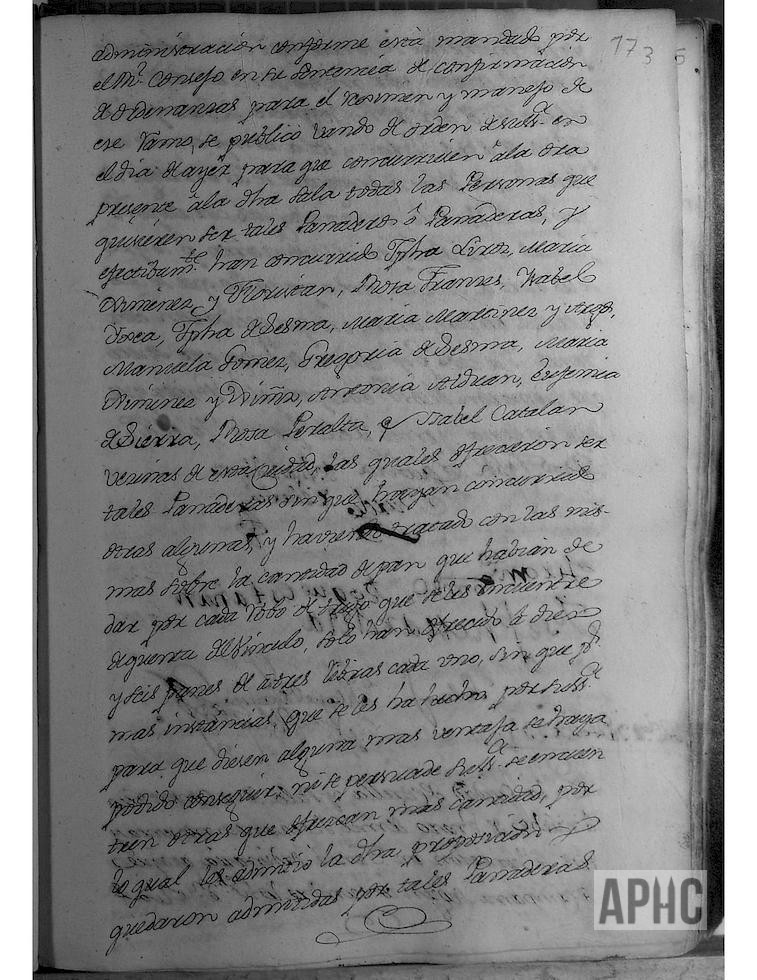 173 5
administracion conforme està mandado por
el Rl. Consejo en su sentencia de confirmacion
de ordenanzas para el regimen y manejo de
ese ramo, se publicò vando de orden de su Sa. en
el dia de ayer para que concurriesen â la ora
presente â la dha sala todas las Personas que
quisieren ser tales Panaderos ô Panaderas, y
efectibamte. han concurrido Jpha Liroz, Maria
Ximenez y Floristan, Rosa Franzes, Ysabel
Jpha de Lesma, Maria Martinez y
Manuela Gomez, Gregoria de Lesma, Maria
Ximenez y Antonia Aldean, Eugenia
de Sierra, Rosa Peralta, e Isabel Catalan
vecinas de esta Ciudad, las quales ofrecieron ser
tales Panaderas sin que haygan concurrido
otras algunas, y haviendo tratado con las mis-
mas sobre la cantidad de pan que habian de
dar por cada robo de trigo que se les encuentre
de quenta del Vinculo, solo han ofrecido â diez
y seis panes de â tres libras cada uno, sin que pr.
mas instancias que se les ha hecho por su Sa.
para que diesen alguna mas ventaja se haya
podido conseguir, ni se persuade su Sa. se encuen
tren otras que ofrezcan mas cantidad, por
lo qual les admitio la dha proposicion y
quedaron admitidas por tales Panaderas
APHC